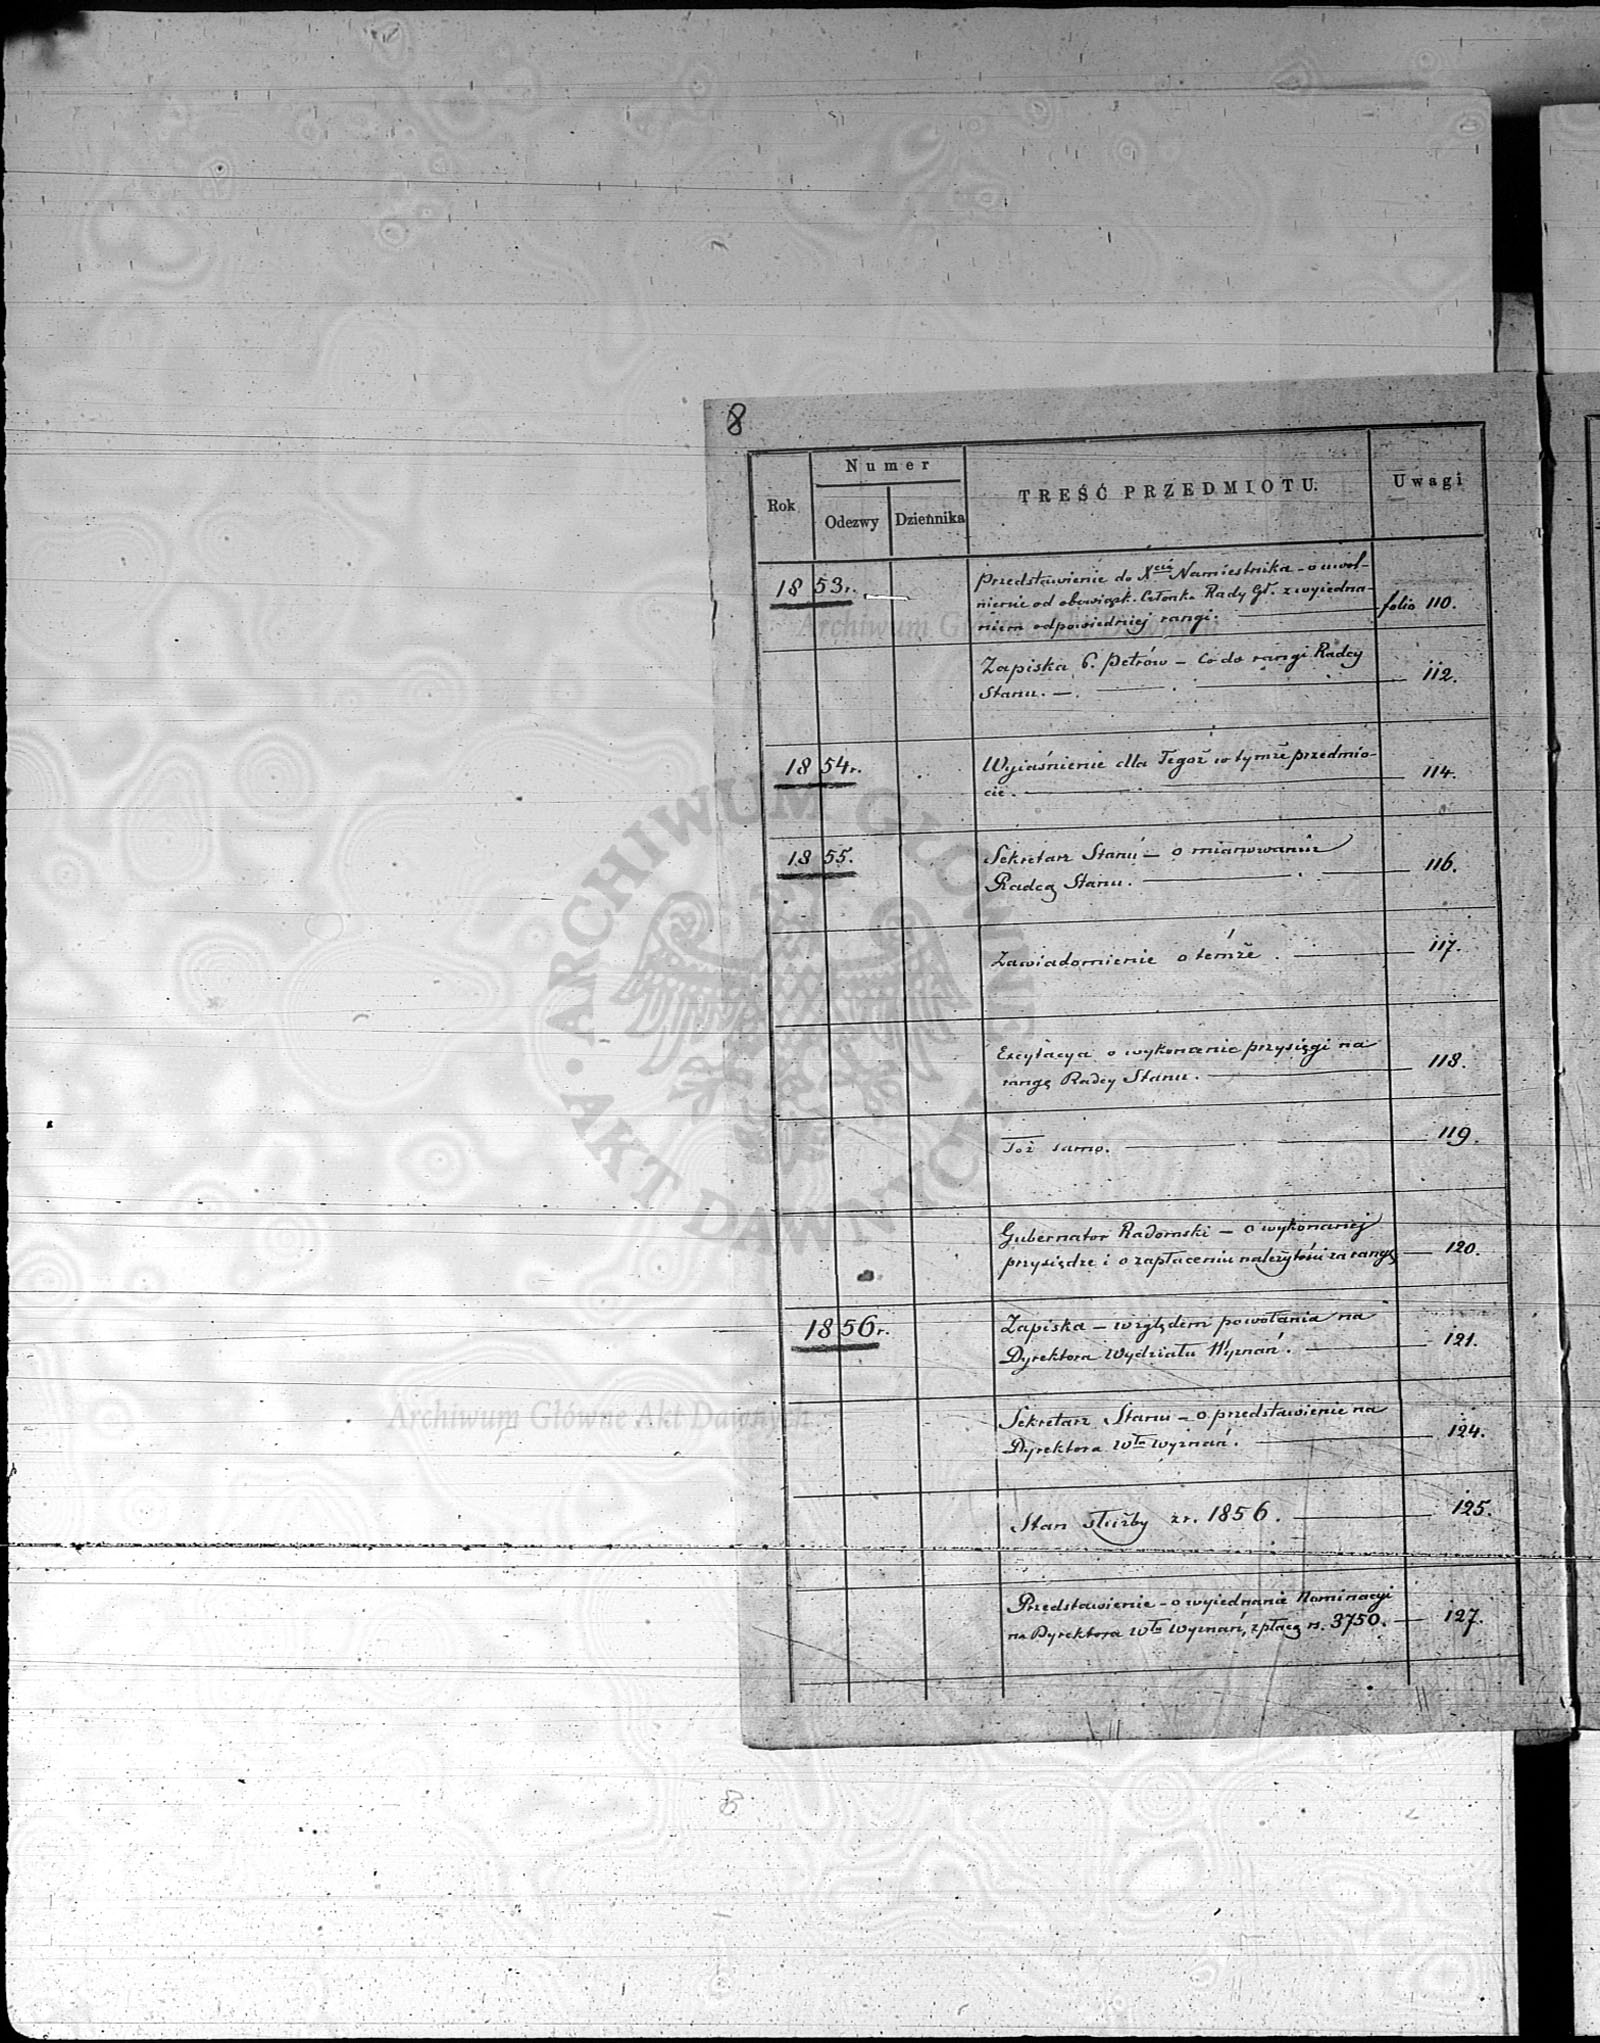 8
Rok
Numer
Odezwy
Dziennika
TREŚĆ PRZEDMIOTU.
Uwagi
1853r.
Przedstawienie do Xcia Namiestnika - o uwol-
nienie od obowiązk. Członka Rady Gł. z wyjedna-
niem odpowiedniej rangi.
folio 110.
Zapiska G. Petrów - co do rangi Radcy
Stanu. -
112.
1854r.
Wyjaśnienie dla Tegoż w tymże przedmio-
cie.
114.
1855.
Sekretarz Stanu - o mianowaniu
Radcą Stanu.
116.
Zawiadomienie o témże.
117.
Excytacya o wykonanie przysięgi na
rangę Radcy Stanu.
118.
Toż samo.
119.
Gubernator Radomski - o wykonanej
przysiędze i o zapłaceniu należytości za rangę
120.
1856r.
Zapiska - względem powołania na
Dyrektora Wydziału Wyznań.
121.
Sekretarz Stanu - o przedstawienie na
Dyrektora Włu Wyznań.
124.
Stan służby z r. 1856.
125.
Przedstawienie - o wyjednanie Nominacyi
na Dyrektora Włu Wyznań, z płacą rs. 3750.
127.
8
Archiwum Główne Akt Dawnych
Archiwum Główne Akt Dawnych
ARCHIWUM GŁÓWNE AKT DAWNYCH